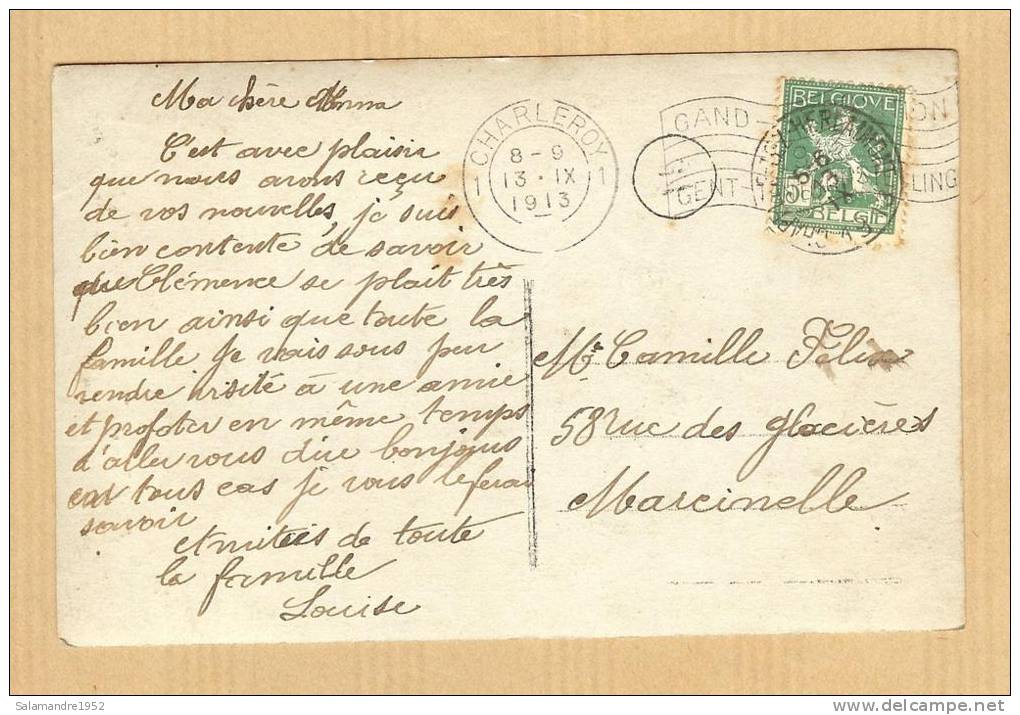 Ma chère Anna
C'est avec plaisir
que nous avons reçu
de vos nouvelles, je suis
bien contente de savoir
que Clémence se plait très
bien ainsi que toute la
famille Je vais sous peu
rendre visite à une amie
et profiter en même temps
d'aller vous dire bonjour
en tous cas je vous le ferai
savoir
Amitiés de toute
la famille
Louise
CHARLEROY
1 1
8-9
13·IX
1913
GAND-
GENT-
BELGIQUE
5c
BELGIË
Mr Camille Félix
58 rue des glacières
Marcinelle
Salamandre1952